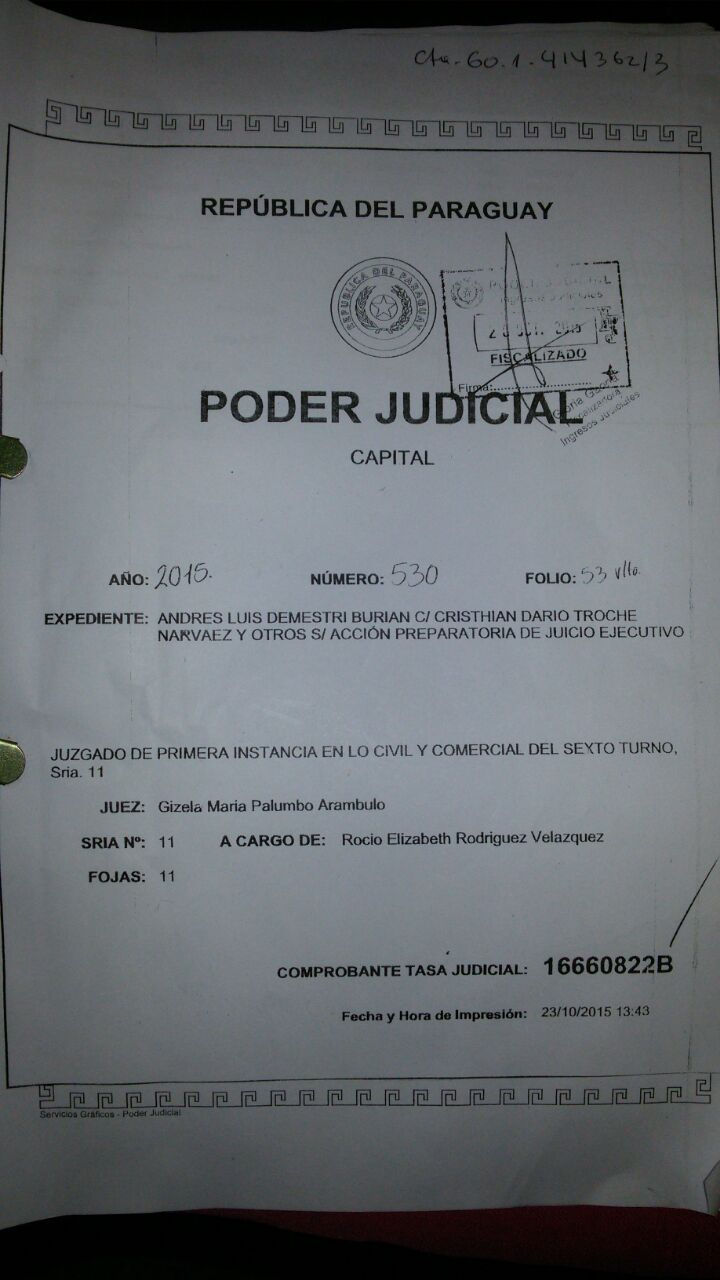 Cta. 60.1.414362/3
REPÚBLICA DEL PARAGUAY
REPUBLICA DEL PARAGUAY
PODER JUDICIAL
FISCALIZADO
Firma:
Ingresos Judiciales
PODER JUDICIAL
CAPITAL
AÑO: 2015. NÚMERO: 530 FOLIO: 53 vlto.
EXPEDIENTE: ANDRES LUIS DEMESTRI BURIAN C/ CRISTHIAN DARIO TROCHE
NARVAEZ Y OTROS S/ ACCIÓN PREPARATORIA DE JUICIO EJECUTIVO
JUZGADO DE PRIMERA INSTANCIA EN LO CIVIL Y COMERCIAL DEL SEXTO TURNO,
Sria. 11
JUEZ: Gizela Maria Palumbo Arambulo
SRIA Nº: 11 A CARGO DE: Rocio Elizabeth Rodriguez Velazquez
FOJAS: 11
COMPROBANTE TASA JUDICIAL: 16660822B
Fecha y Hora de Impresión: 23/10/2015 13:43
Servicios Gráficos - Poder Judicial